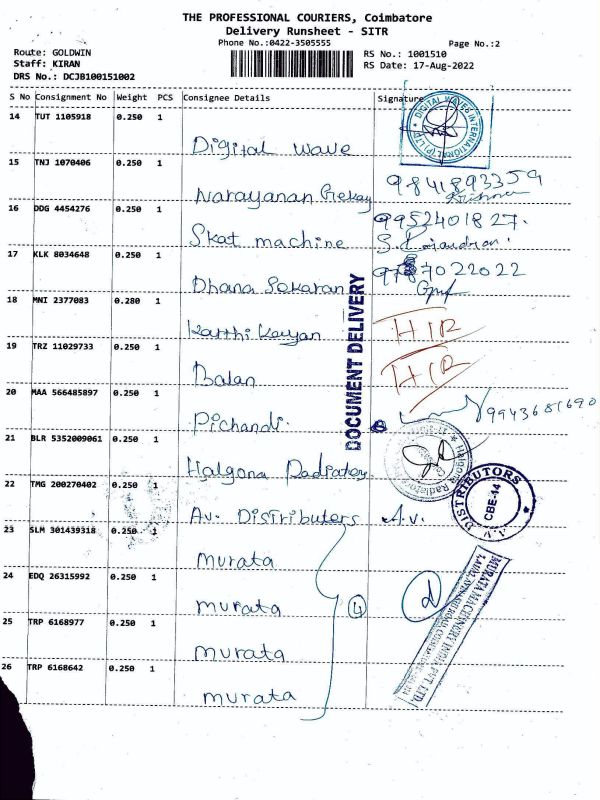 THE PROFESSIONAL COURIERS, Coimbatore
Delivery Runsheet - SITR
Phone No.:0422-3505555
Page No.:2
Route: GOLDWIN
RS No.: 1001510
Staff: KIRAN
RS Date: 17-Aug-2022
DRS No.: DCJB100151002
S No Consignment No Weight PCS Consignee Details Signature
14 TUT 1105918 0.250 1
Digital wave
DIGITAL WAVES INTERNATIONAL (P) LTD
15 TNJ 1070406 0.250 1
Narayanan 9841893359
16 DDG 4454276 0.250 1
9952401827.
Skat machine
17 KLK 8034648 0.250 1
Dhana Sekaran
DOCUMENT DELIVERY
18 MNI 2377083 0.280 1
Karthi Kayan
19 TRZ 11029733 0.250 1
Balan
20 MAA 566485897 0.250 1
Pichandi. 9943681690
21 BLR 5352009061 0.250 1
Halgona Radiators
22 TMG 200270402 0.250 1
A.V. DISTRIBUTORS
CBE-14
Av. Distributers A.v.
23 SLM 301439318 0.250 1
murata
24 EDQ 26315992 0.250 1
murata 4
25 TRP 6168977 0.250 1
murata
MURATA MACHINERY INDIA PVT. LTD.
26 TRP 6168642 0.250 1
murata